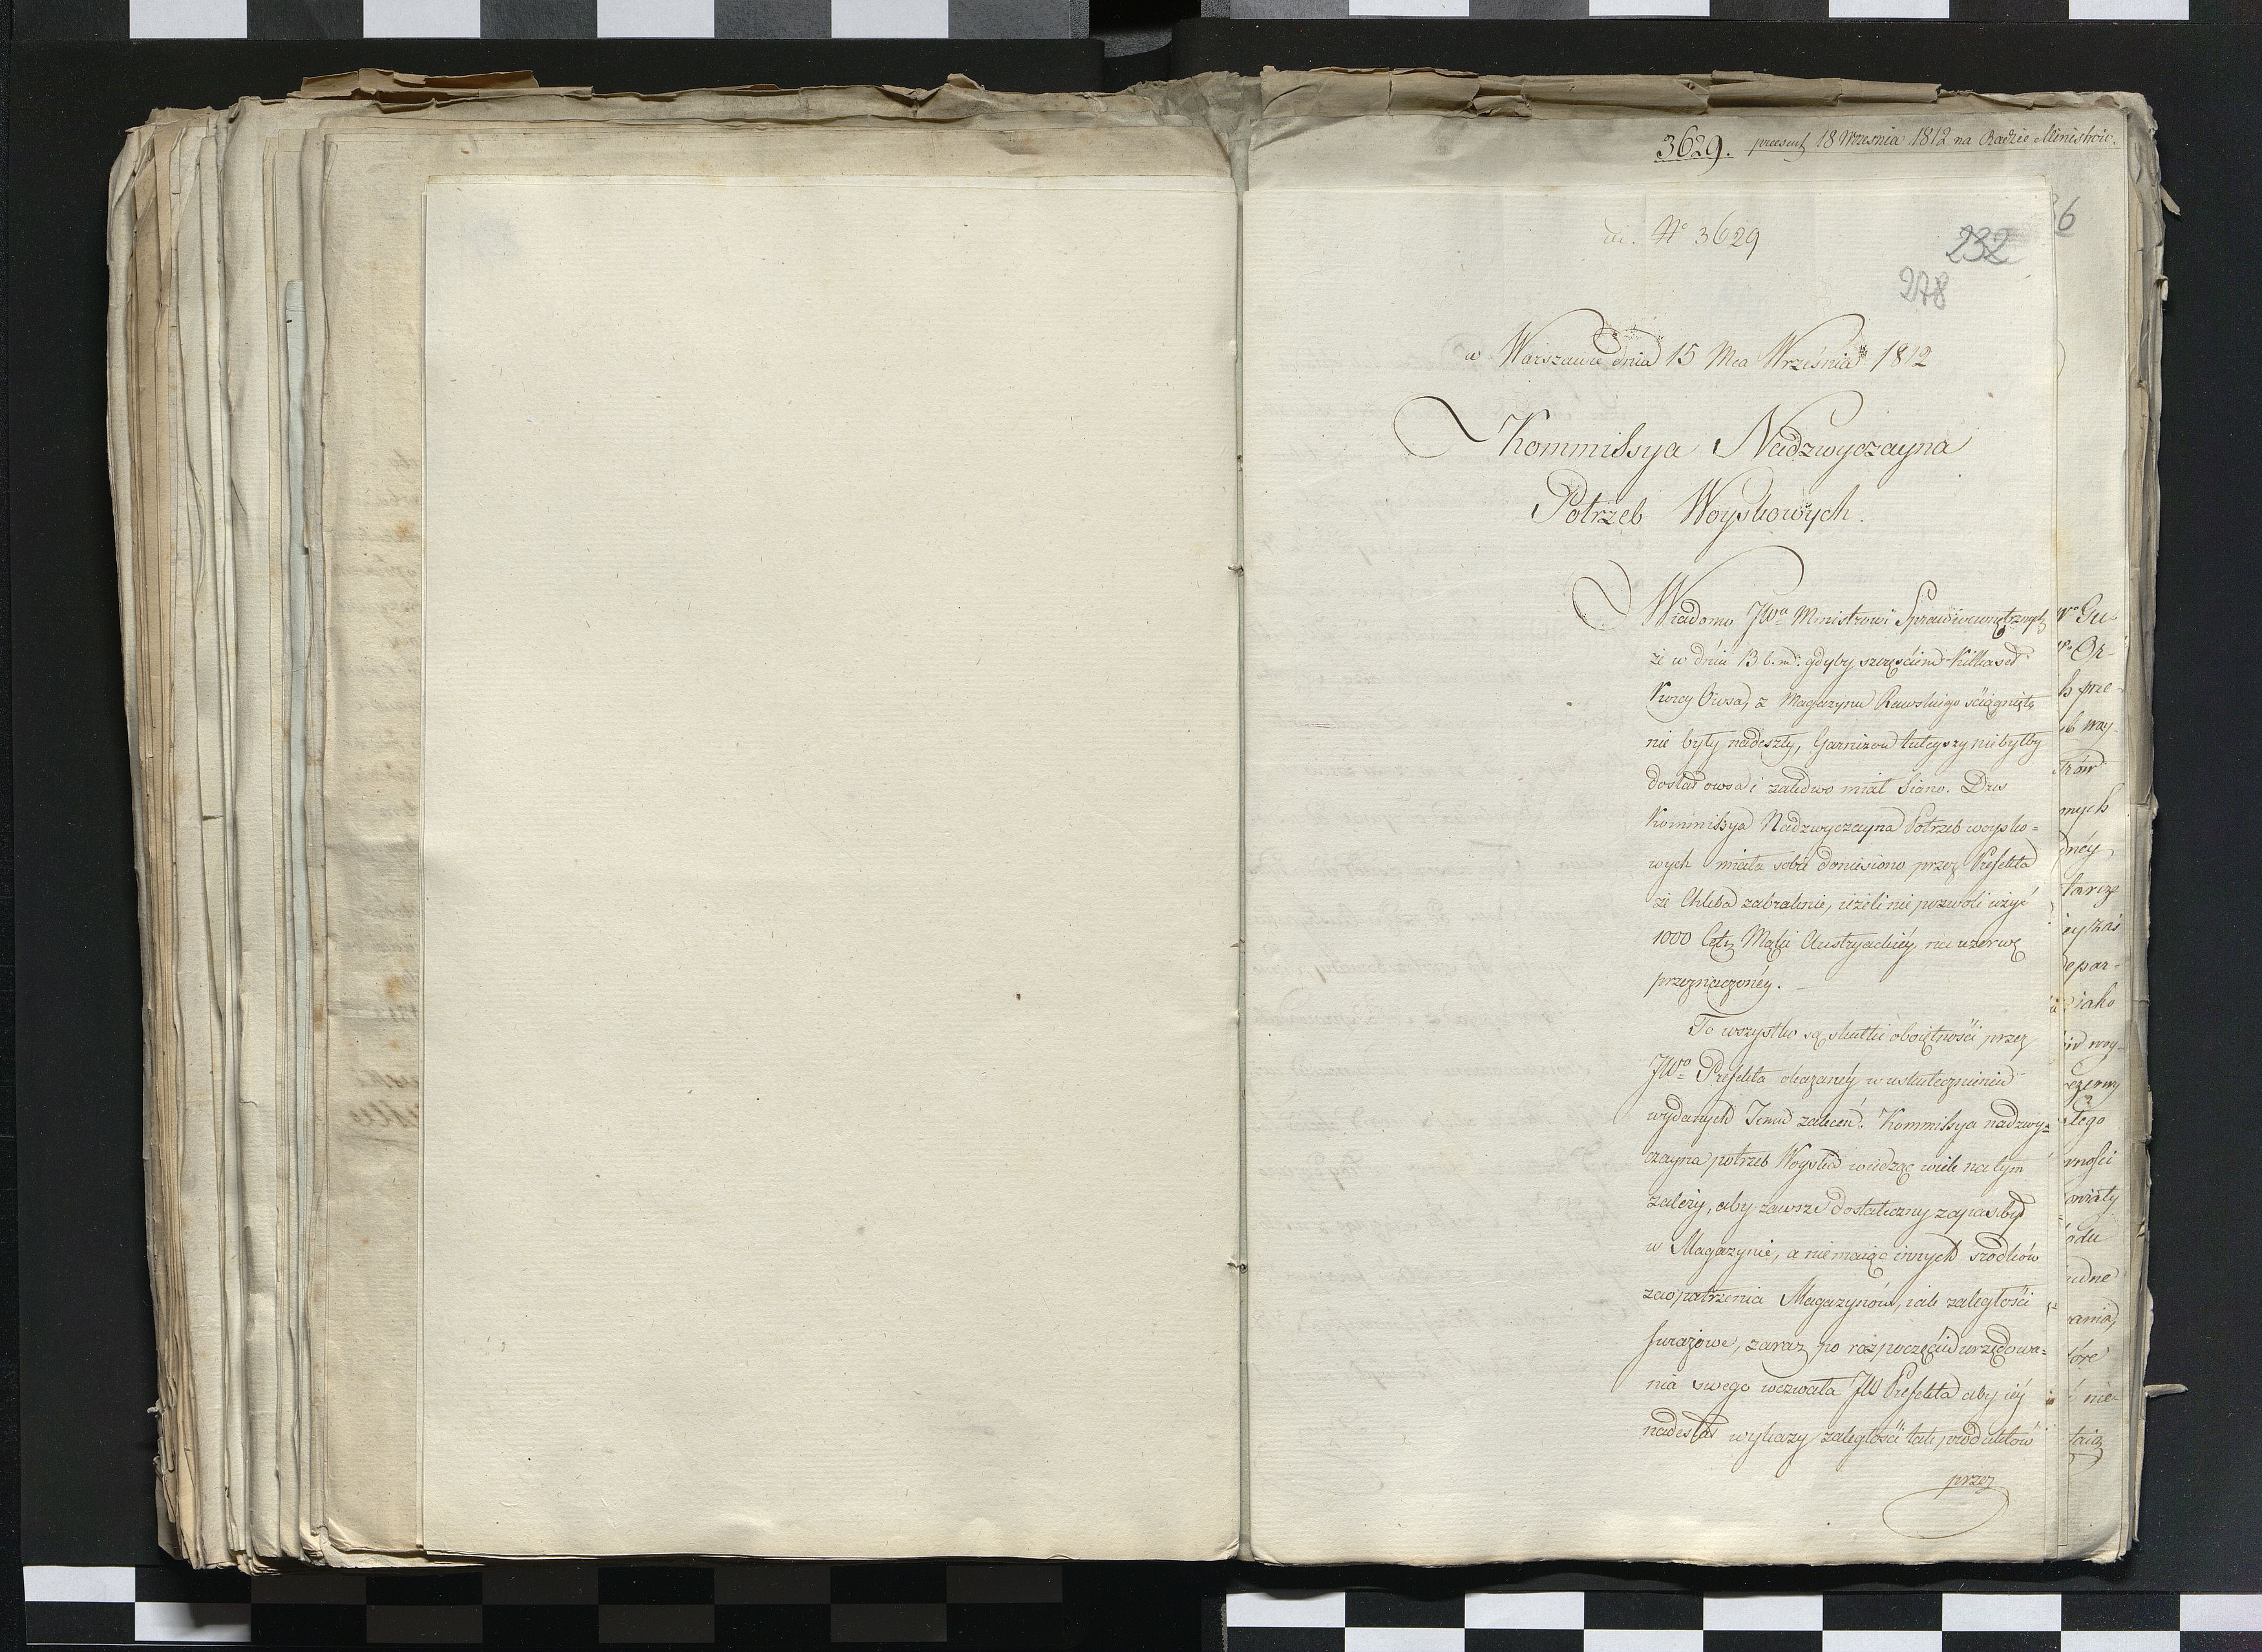 3629. praesent 18 Września 1812 na Radzie Ministrów.
36
ad. No 3629
232
278
w Warszawie dnia 15 Mca Września 1812
Kommissya Nadzwyczayna
Potrzeb Woyskowych.
Wiadomo JWu Ministrowi Spraw wewnętrznych
że w dniu 13 b. m. gdyby szczęściem kilkaset
Korcy Owsa, z Magazynu Rawskiego ściągnięte
nie były nadeszły, Garnizon tuteyszy nie byłby
dostał owsa i zaledwo miał Siano. Dziś
Kommissya Nadzwyczayna Potrzeb woysko=
wych miała sobie doniesiono przez Prefekta
że Chleba zabraknie, ieżeli nie pozwoli użyć
1000 Cetn. Mąki Austryackiéy na rezerwę
przeznaczonéy.
To wszystko są skutki oboiętności przez
JWo Prefekta okazanéy w uskutecznieniu
wydanych Jemu zaleceń. Kommissya nadzwy=
czayna potrzeb Woyska widząc wiele na tym
zależy, aby zawsze dostateczny zapas był
w Magazynie, a niemaiąc innych srodków
zaopatrzenia Magazynów, iak zaległości
furażowe, zaraz po rozpoczęciu urzędowa=
nia swego wezwała JW Prefekta aby iéy
nadesłał wykazy zaległości tak produktów
przez